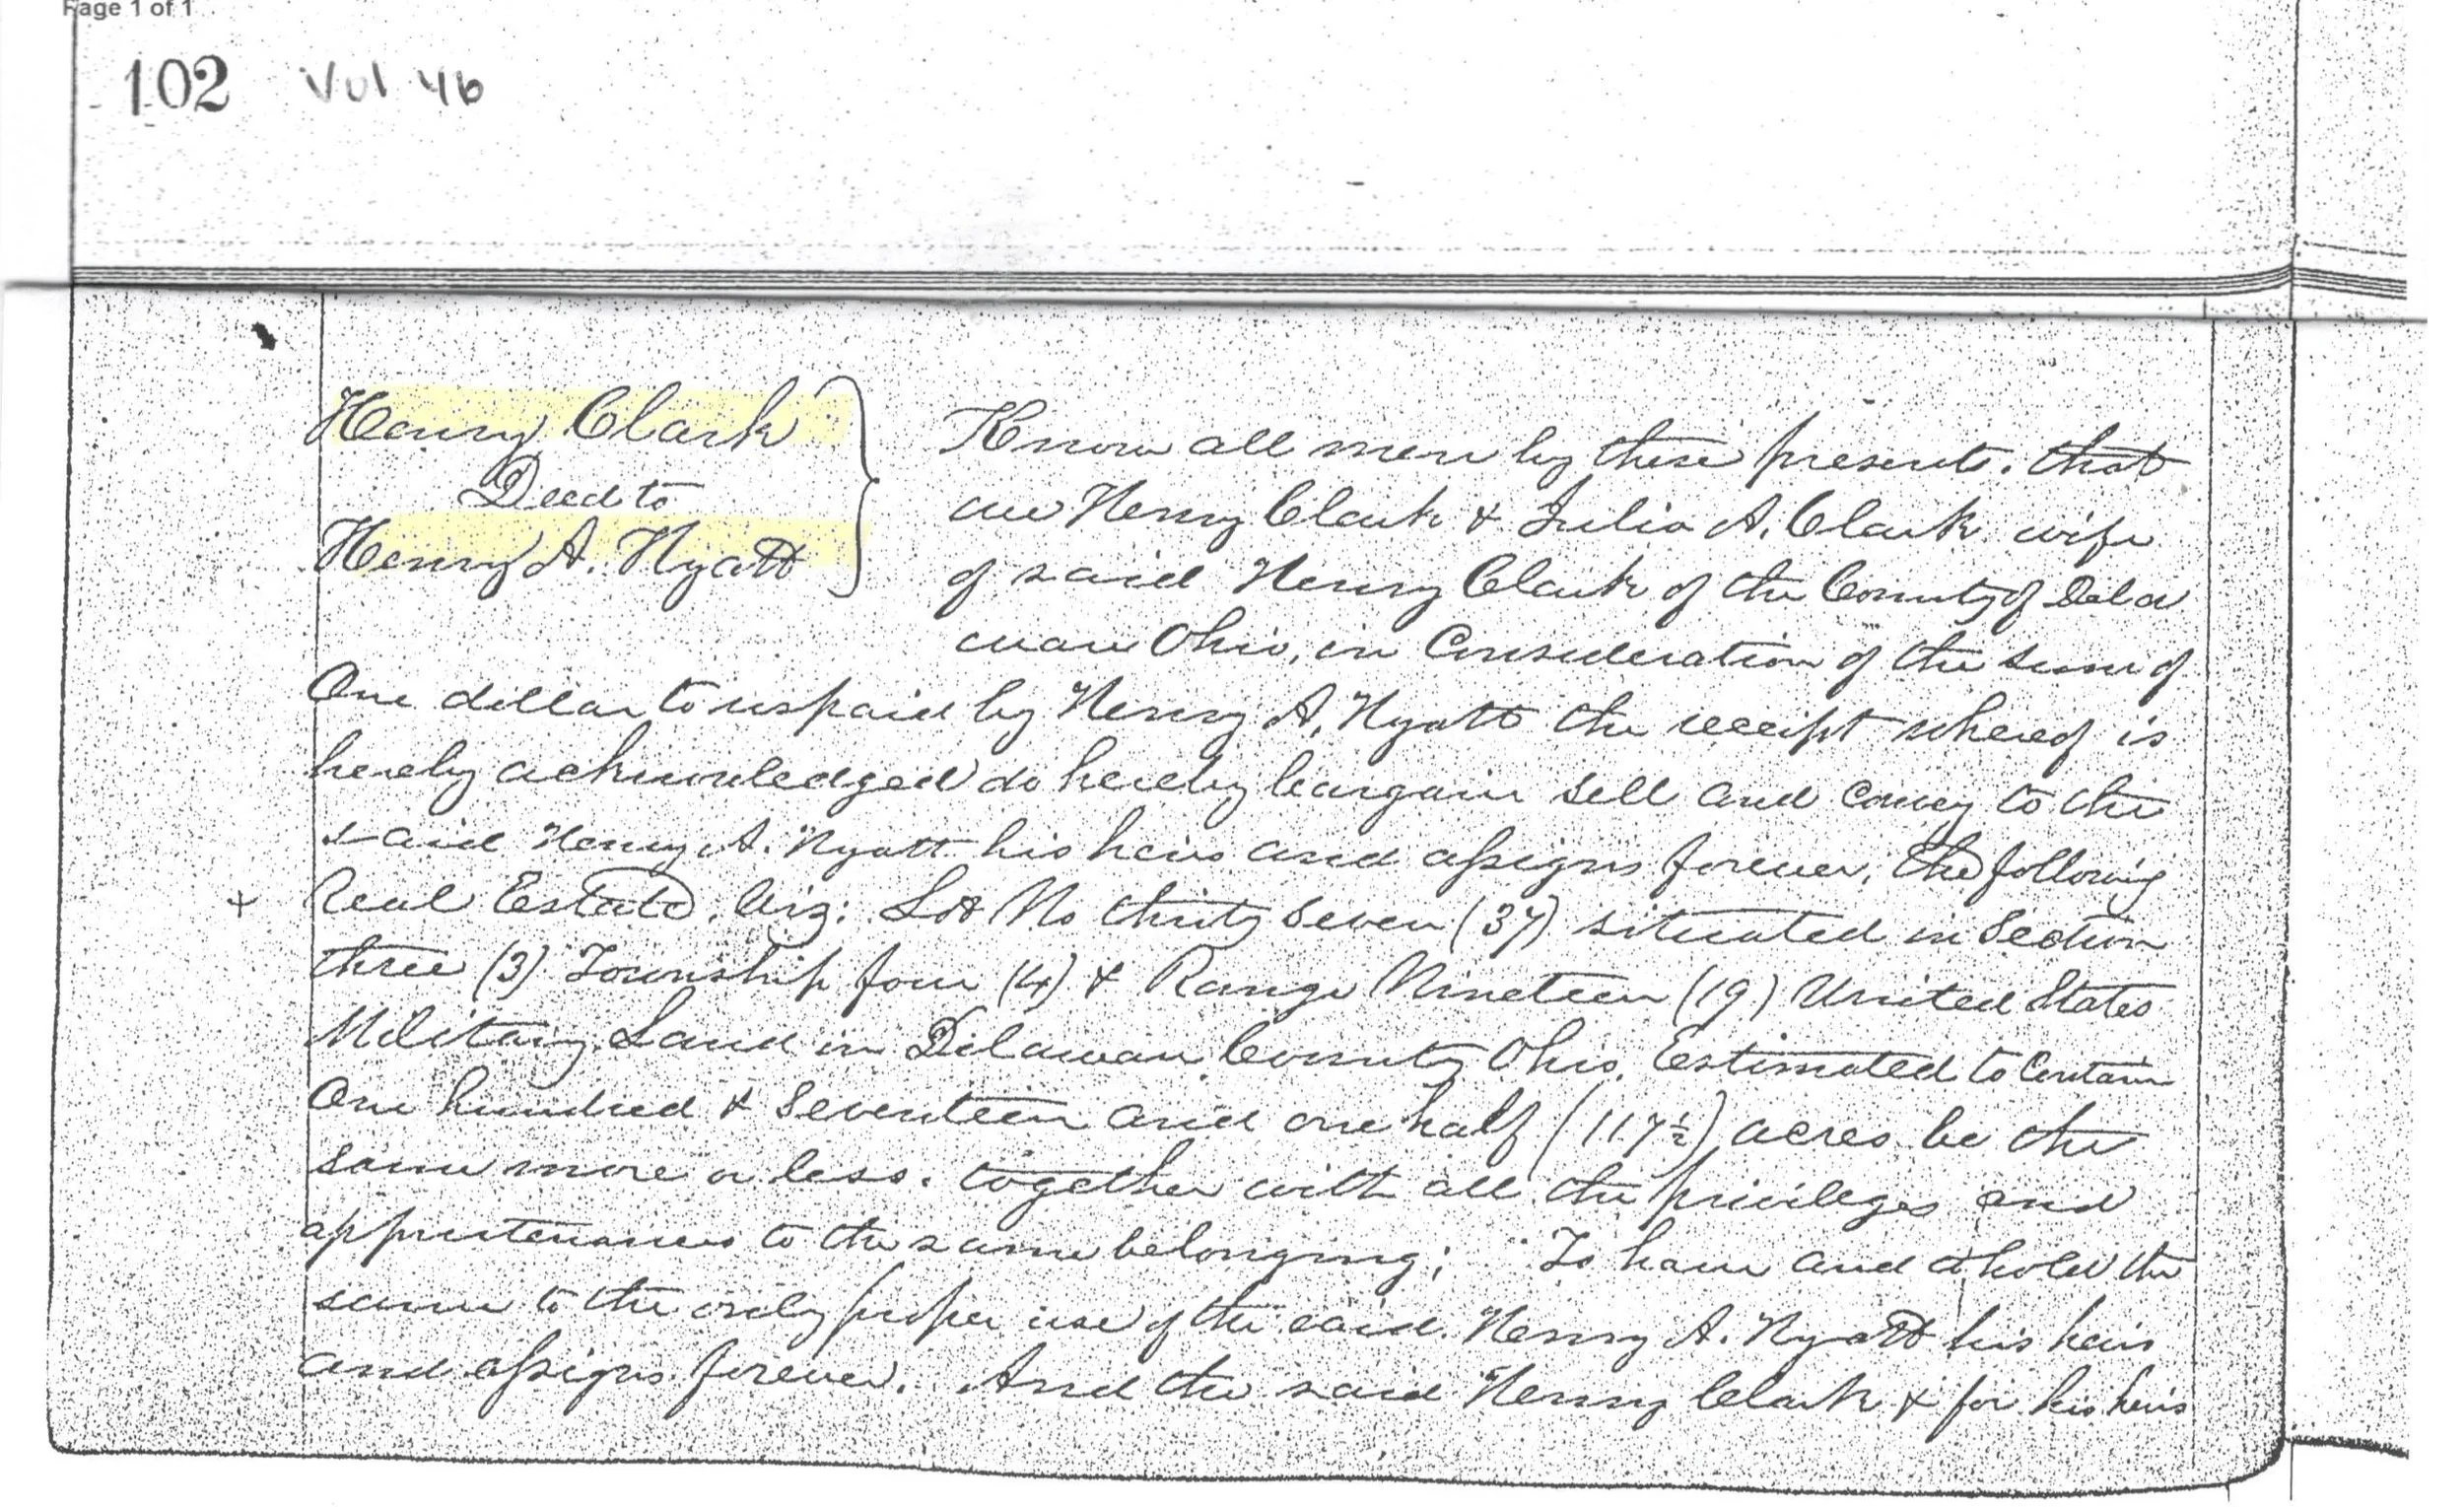 Page 1 of 1
102 Vol 46
Henry Clark
Deed to
Henry A. Hyatt
Know all men by these presents. that
we Henry Clark & Julia A. Clark wife
of said Henry Clark of the County of Dela
ware Ohio, in Consideration of the sum of
One dollar to us paid by Henry A. Hyatt the receipt whereof is
hereby acknowledged do hereby bargain sell and convey to the
said Henry A. Hyatt his heirs and assigns forever, the following
+ Real Estate. Viz: Lot No thirty seven (37) situated in Section
three (3) Township four (4) & Range Nineteen (19) United States
Military Land in Delaware County Ohio, Estimated to Contain
One hundred & Seventeen and one half (117½) acres be the
same more or less. together with all the privileges and
appurtenances to the same belonging; To have and to hold the
same to the only proper use of the said Henry A. Hyatt his heirs
and assigns forever. And the said Henry Clark & for his heirs